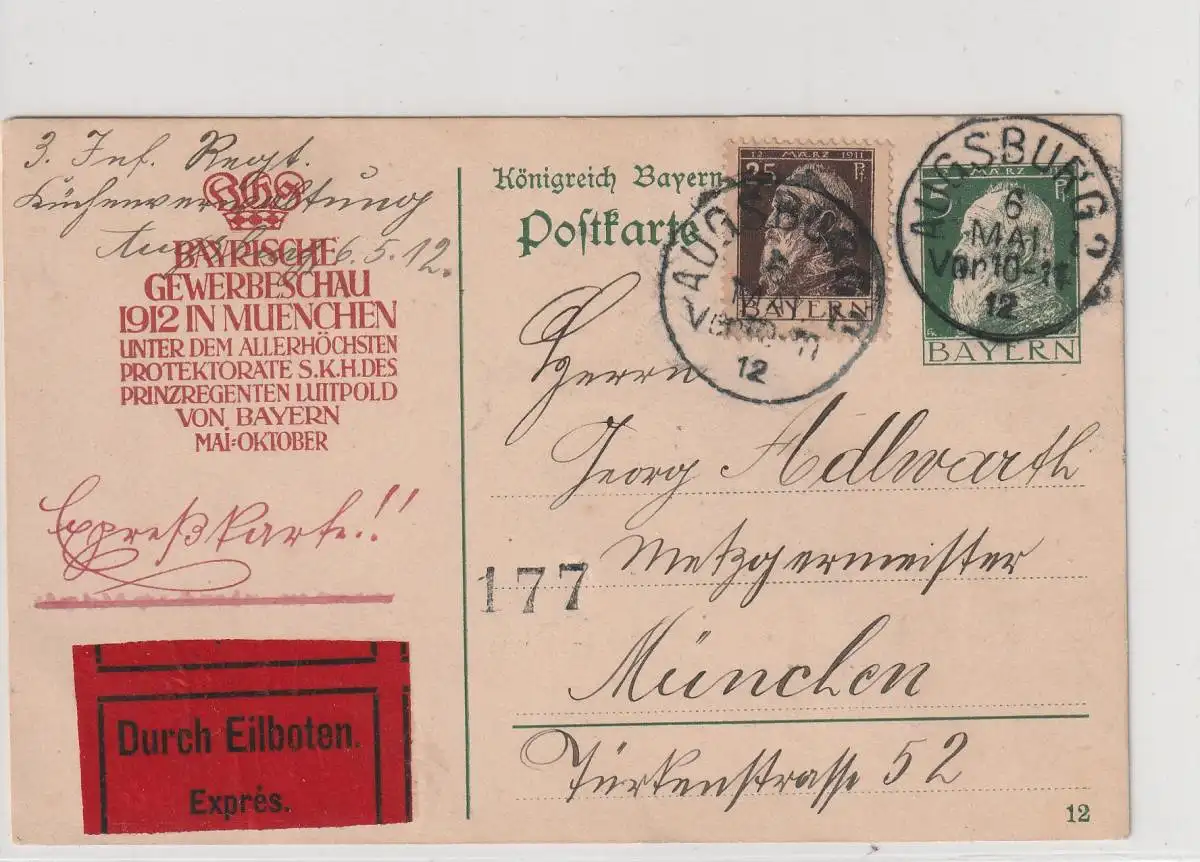 3. Inf. Regt.
Küchenverwaltung
Augsburg 6.5.12.
BAYRISCHE
GEWERBESCHAU
1912 IN MUENCHEN
UNTER DEM ALLERHÖCHSTEN
PROTEKTORATE S.K.H.DES
PRINZREGENTEN LUITPOLD
VON BAYERN
MAI-OKTOBER
Expreßkarte!!
Durch Eilboten.
Exprés.
Königreich Bayern
Postkarte
12 MÆRZ 1911
25 Pf
BAYERN
AUGSBURG 2
Vor10-11
12
MÆRZ
5 Pf
BAYERN
AUGSBURG 2
6
MAI
Vor10-11
12
Herrn
Georg Adlwarth
Metzgermeister
177
München
Türkenstrasse 52
12